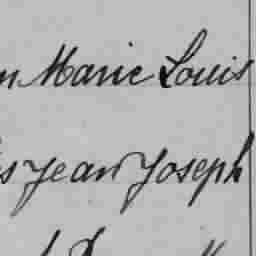 n Marie Louis
s Jean Joseph